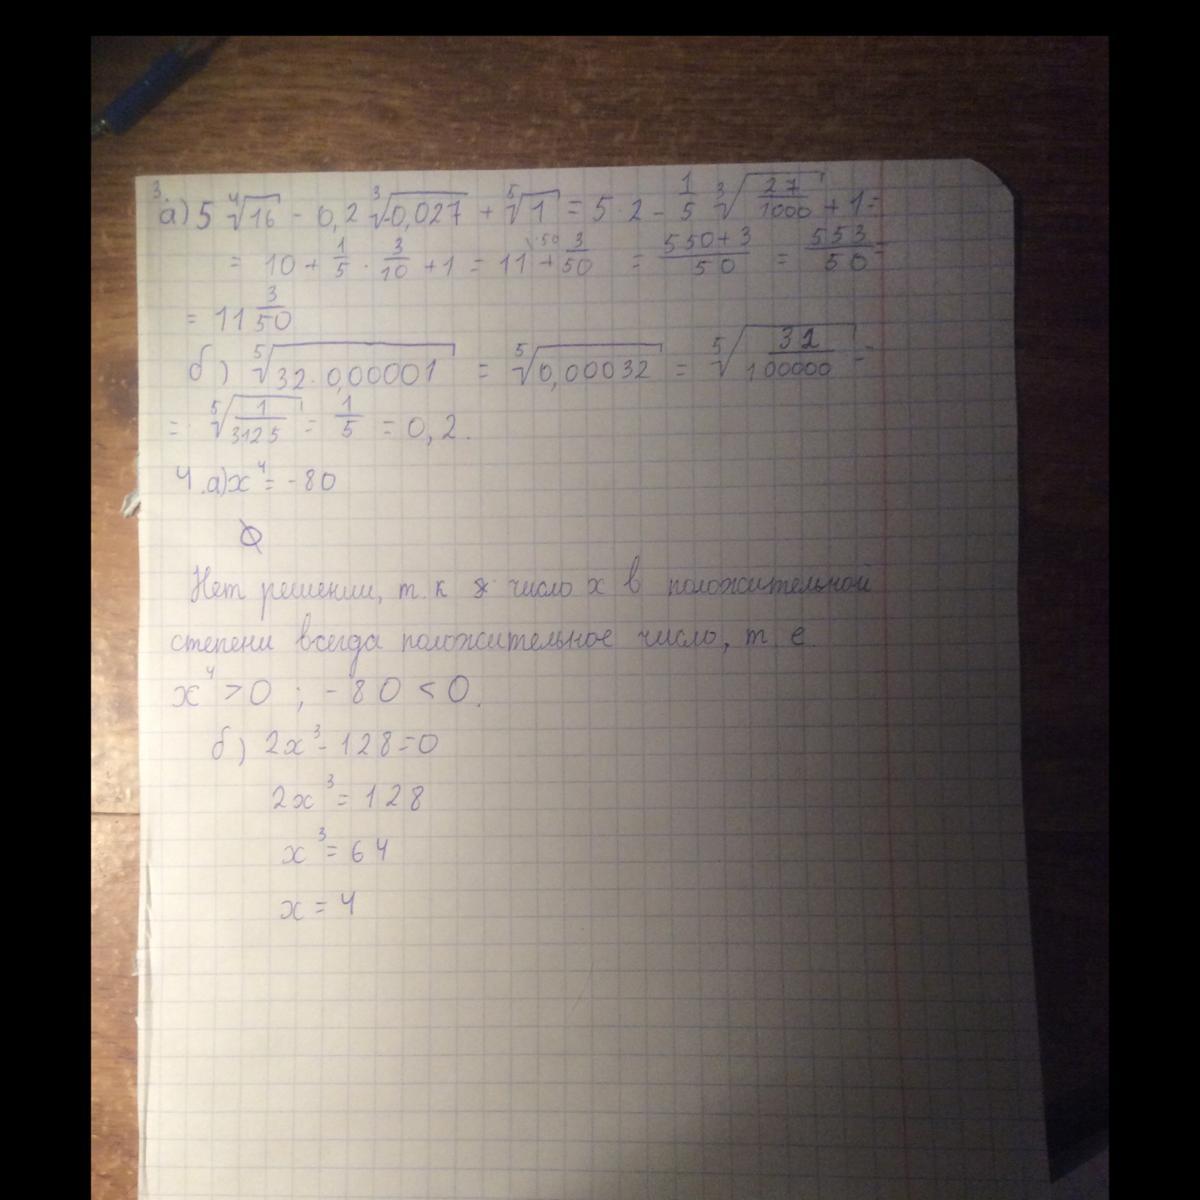 3.
а) 5 ⁴√16 - 0,2 ³√-0,027 + ⁵√1 = 5·2 - 1/5 ³√27/1000 + 1 =
= 10 + 1/5 · 3/10 + 1 = 11\·50 + 3/50 = 550+3/50 = 553/50 =
= 11 3/50
б) ⁵√32·0,00001 = ⁵√0,00032 = ⁵√32/100000 =
= ⁵√1/3125 = 1/5 = 0,2.
4. а) x⁴ = -80
∅
Нет решении, т.к число x в положительной
степени всегда положительное число, т. е.
x⁴ > 0 ; - 80 < 0.
б) 2x³ - 128 = 0
2x³ = 128
x³ = 64
x = 4